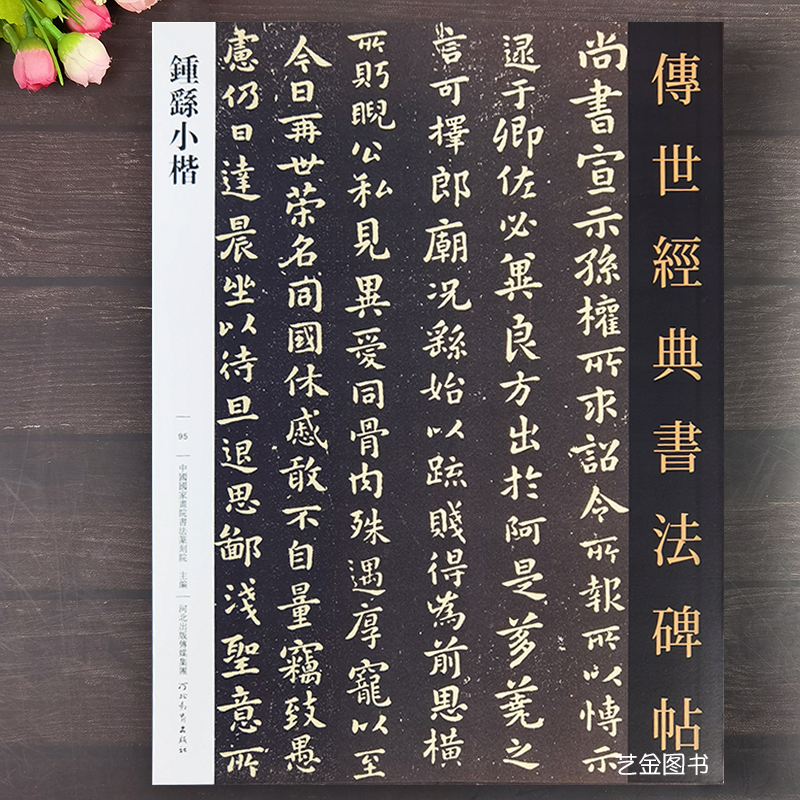 傳世經典書法碑帖
尚書宣示孫權所求詔令所報所以博示
逮于卿佐必冀良方出於阿是芻蕘之
言可擇郎廟況繇始以疏賤得為前恩橫
所眄睨公私見異愛同骨肉殊遇厚寵以至
今日再世榮名同國休慼敢不自量竊致愚
慮仍日達晨坐以待旦退思鄙淺聖意所
鍾繇小楷
95
中國國家畫院書法篆刻院 主編
河北出版傳媒集團
河北教育出版社
艺金图书